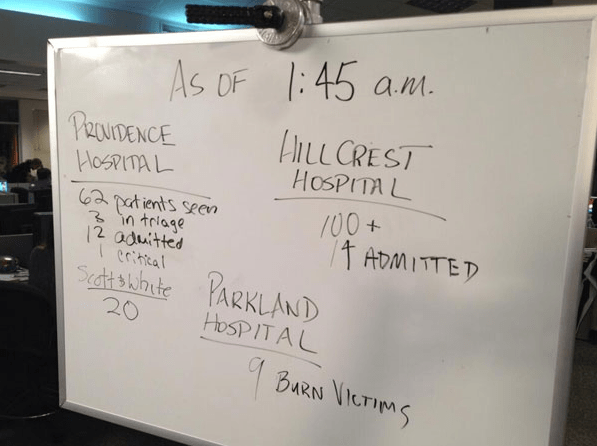 AS OF 1:45 a.m.
PROVIDENCE
HOSPITAL
62 patients seen
3 in triage
12 admitted
1 critical
Scott & White
20
HILLCREST
HOSPITAL
100+
14 ADMITTED
PARKLAND
HOSPITAL
9 BURN VICTIMS